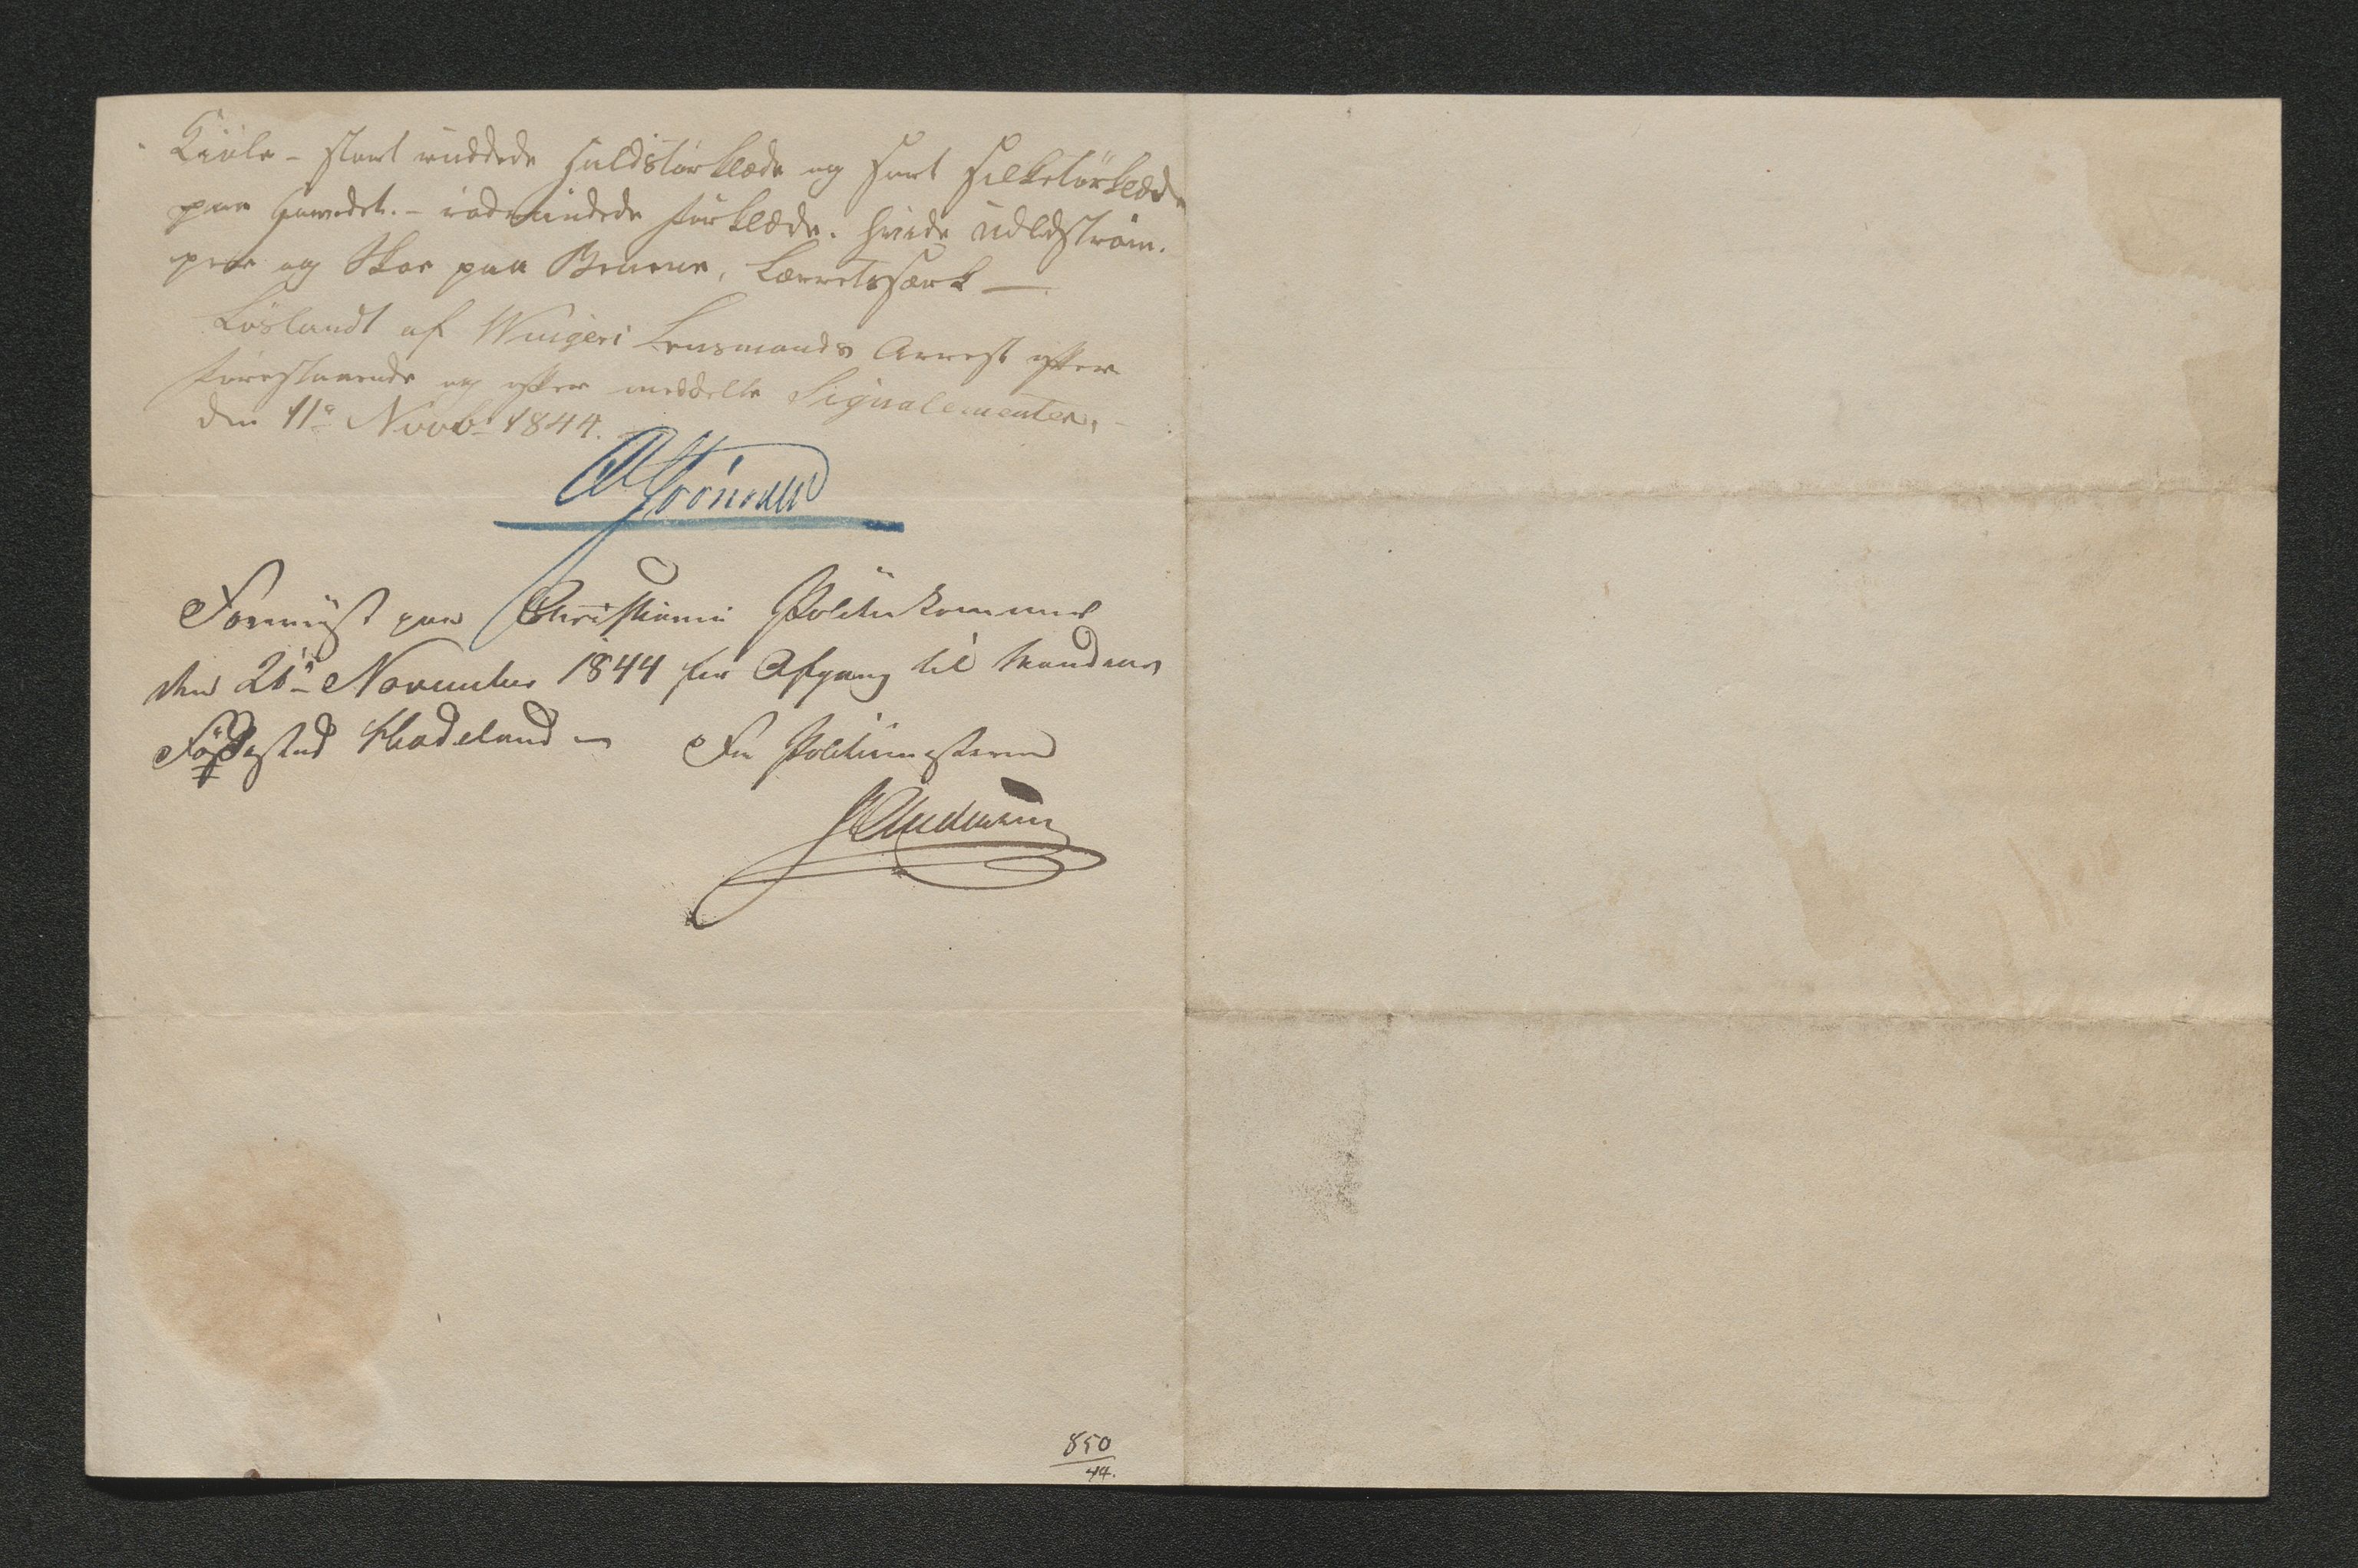 Kiole - stort ruddede Haldstørklæde og sort Silketørklæde
paa Hovedet. - rødrandede Forklæde. hvide Uldstrøm-
per og Skoe paa Benene, Lærretssærk —
Løsladt af Wingers Lensmands Arrest efter
forestaaende og efter meddelte Signalementer, -
den 11te Novbr 1844.
Foreviist paa Christiania Politiekammer
den 26de November 1844 før Afgang til
Fødestad Hadeland — For Politiemesteren
850
44.